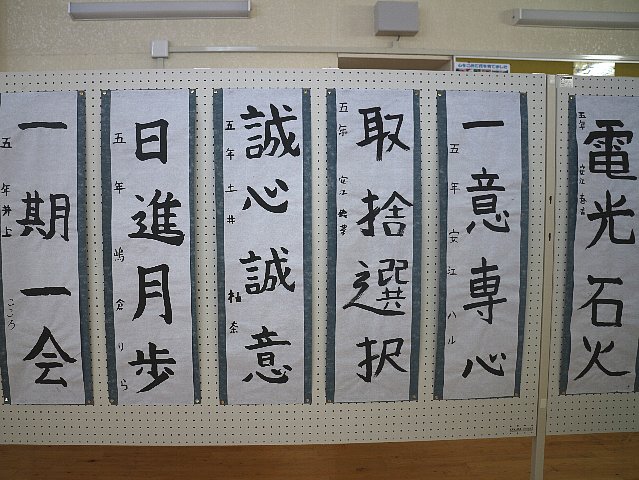 電光石火
五年
一意専心
五年 安江 ハル
取捨選択
五年 安江
誠心誠意
五年 土井 柚奈
日進月歩
五年 嶋倉 りら
一期一会
五年 井上 こころ